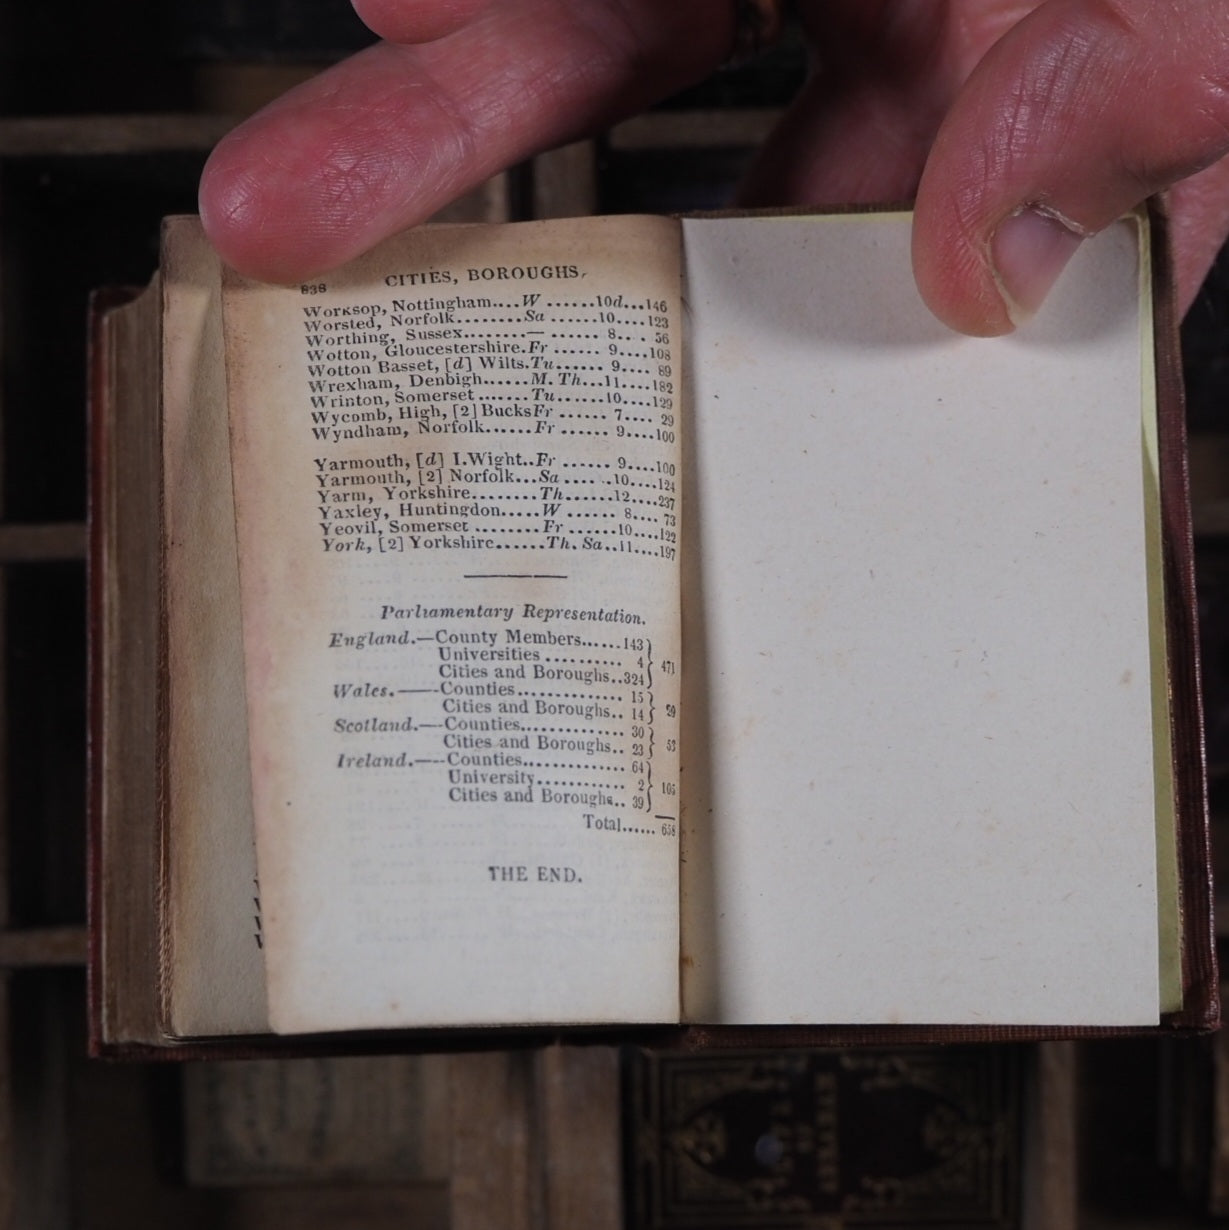 838 CITIES, BOROUGHS,
Worksop, Nottingham....W ......10d...146
Worsted, Norfolk........Sa ......10....123
Worthing, Sussex.......— ...... 8.... 56
Wotton, Gloucestershire.Fr ...... 9....108
Wotton Basset, [d] Wilts.Tu...... 9.... 89
Wrexham, Denbigh......M. Th...11....182
Wrinton, Somerset ......Tu......10....129
Wycomb, High, [2] Bucks Fr ...... 7.... 29
Wyndham, Norfolk......Fr ...... 9....100
Yarmouth, [d] I.Wight..Fr ...... 9....100
Yarmouth, [2] Norfolk...Sa .... ..10....124
Yarm, Yorkshire........Th......12....237
Yaxley, Huntingdon.....W ...... 8.... 73
Yeovil, Somerset ........Fr ......10....122
York, [2] Yorkshire......Th. Sa..11....197
Parliamentary Representation.
England.—County Members......143
Universities .......... 4 } 471
Cities and Boroughs..324
Wales.——Counties............. 15
Cities and Boroughs.. 14 } 29
Scotland.—-Counties............. 30
Cities and Boroughs.. 23 } 53
Ireland.—--Counties............. 64
University........... 2 } 105
Cities and Boroughs.. 39
Total...... 658
THE END.